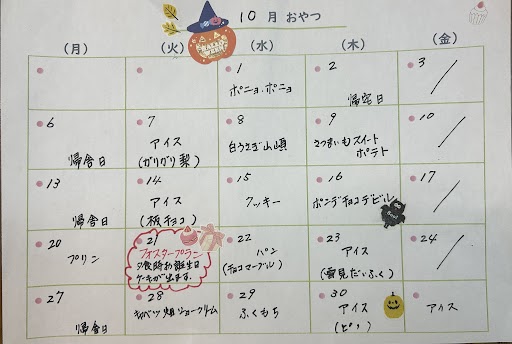 10月 おやつ
(月) (火) (水) (木) (金)
1
ポニョ、ポニョ
2
帰宅日
3
6
帰舎日
7
アイス
(ガリガリ梨)
8
白うさぎ山頂
9
さつまいもスイート
ポテト
10
13
帰舎日
14
アイス
(板チョコ)
15
クッキー
16
ポンデチョコデビル
17
20
プリン
21
フォスタープラン
夕食時お誕生日
ケーキが出ます。
22
パン
(チョコマーブル)
23
アイス
(雪見だいふく)
24
27
帰舎日
28
キャベツ畑シュークリーム
29
ふくもち
30
アイス
(ピノ)
アイス